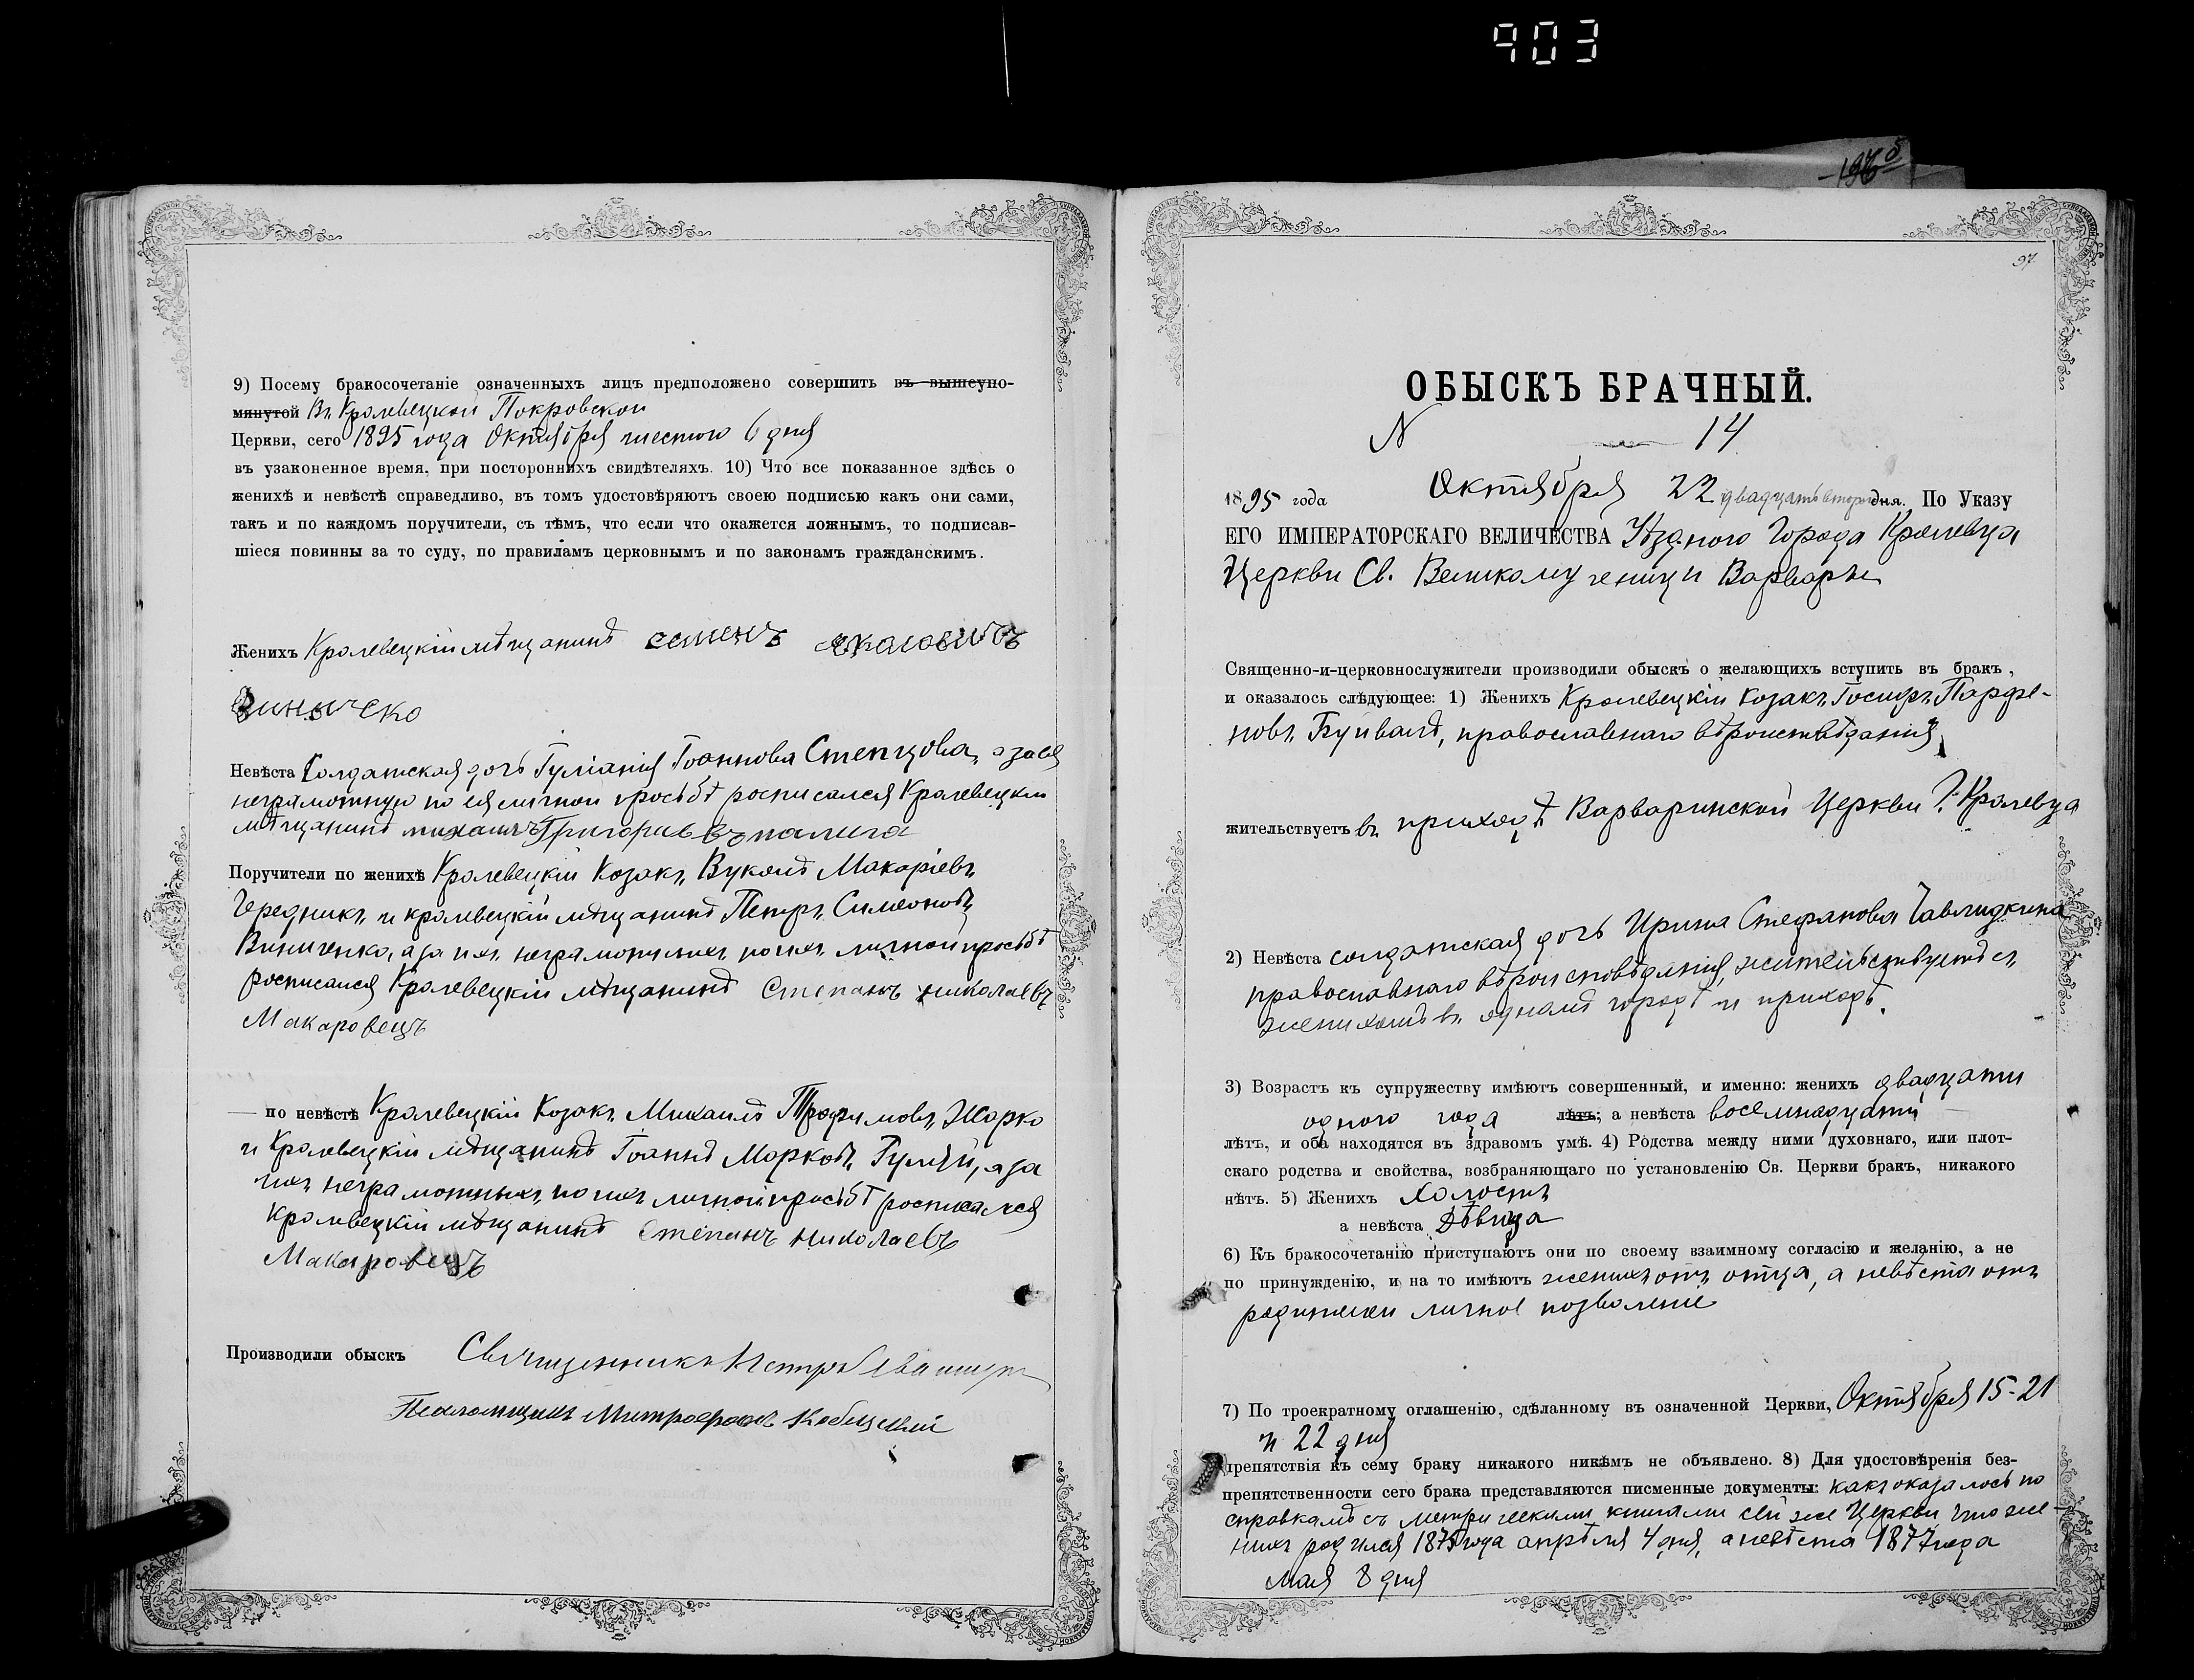 903
196 б
9) Посему бракосочетаніе означенныхъ лицъ предположено совершить въ вышеупо-
мянутой Въ Кролевецкой Покровской
Церкви, сего 1895 года Октября шестого 6 дня
въ узаконенное время, при постороннихъ свидѣтеляхъ. 10) Что все показанное здѣсь о
женихѣ и невѣстѣ справедливо, въ томъ удостовѣряютъ своею подписью какъ они сами,
такъ и по каждомъ поручители, съ тѣмъ, что если что окажется ложнымъ, то подписав-
шіеся повинны за то суду, по правиламъ церковнымъ и по законамъ гражданскимъ.
Женихъ Кролевецкій мѣщанинъ семенъ
Невѣста Солдатская дочь Іуліанія Іоаннова Степцова, а за ея
неграмотную по ея личной просьбѣ росписался Кролевецкій
мѣщанинъ михаилъ Григориевъ палига
Поручители по женихѣ Кролевецкій Козакъ Вуколъ Макаріевъ
Чередникъ и кролевецкій мѣщанинъ Петръ Симеоновъ
Виниченко, а за ихъ неграмотныхъ по ихъ личной просьбѣ
росписался Кролевецкій мѣщанинъ Степанъ николаевъ
Макаровецъ
по невѣстѣ Кролевецкій Козакъ Михаилъ Трофимовъ Жарко
и Кролевецкій мѣщанинъ Іоаннъ Марковъ а за
ихъ неграмотныхъ по ихъ личной просьбѣ росписался
Кролевецкій мѣщанинъ Степанъ николаевъ
Макаровецъ
Производили обыскъ Священникъ Петръ
Псаломщикъ Митрофанъ
97
ОБЫСКЪ БРАЧНЫЙ.
N 14
1895 года Октября 22 двадцать второго дня. По Указу
ЕГО ИМПЕРАТОРСКАГО ВЕЛИЧЕСТВА Уѣзднаго Города Кролевца
Церкви Св. Великомученицы Варвары
Священно-и-церковнослужители производили обыскъ о желающихъ вступить въ бракъ,
и оказалось слѣдующее: 1) Женихъ Кролевецкій Козакъ Іосифъ Парфе-
новъ Буйвалъ, православнаго вѣроисповѣданія,
жительствуетъ въ приходѣ Варваринской Церкви Г. Кролевца
2) Невѣста солдатская дочь Ирина Стефанова
православнаго вѣроисповѣданія, жительствуетъ съ
женихомъ въ одномъ городѣ и приходѣ.
3) Возрастъ къ супружеству имѣютъ совершенный, и именно: женихъ двадцати
одного года лѣтъ; а невѣста восемнадцати
лѣтъ, и оба находятся въ здравомъ умѣ. 4) Родства между ними духовнаго, или плот-
скаго родства и свойства, возбраняющаго по установленію Св. Церкви бракъ, никакого
нѣтъ. 5) Женихъ Холостъ
а невѣста Дѣвица
6) Къ бракосочетанію приступаютъ они по своему взаимному согласію и желанію, а не
по принужденію, и на то имѣютъ женихъ отъ отца, а невѣста отъ
личное позволеніе
7) По троекратному оглашенію, сдѣланному въ означенной Церкви, Октября 15-21
и 22 дня
препятствія къ сему браку никакого никѣмъ не объявлено. 8) Для удостовѣренія без-
препятственности сего брака представляются писменные документы: какъ оказалось по
справкамъ съ метрическими книгами сей же Церкви что же-
нихъ родился года апрѣля 4 дня, а невѣста 1877 года
мая 8 дня